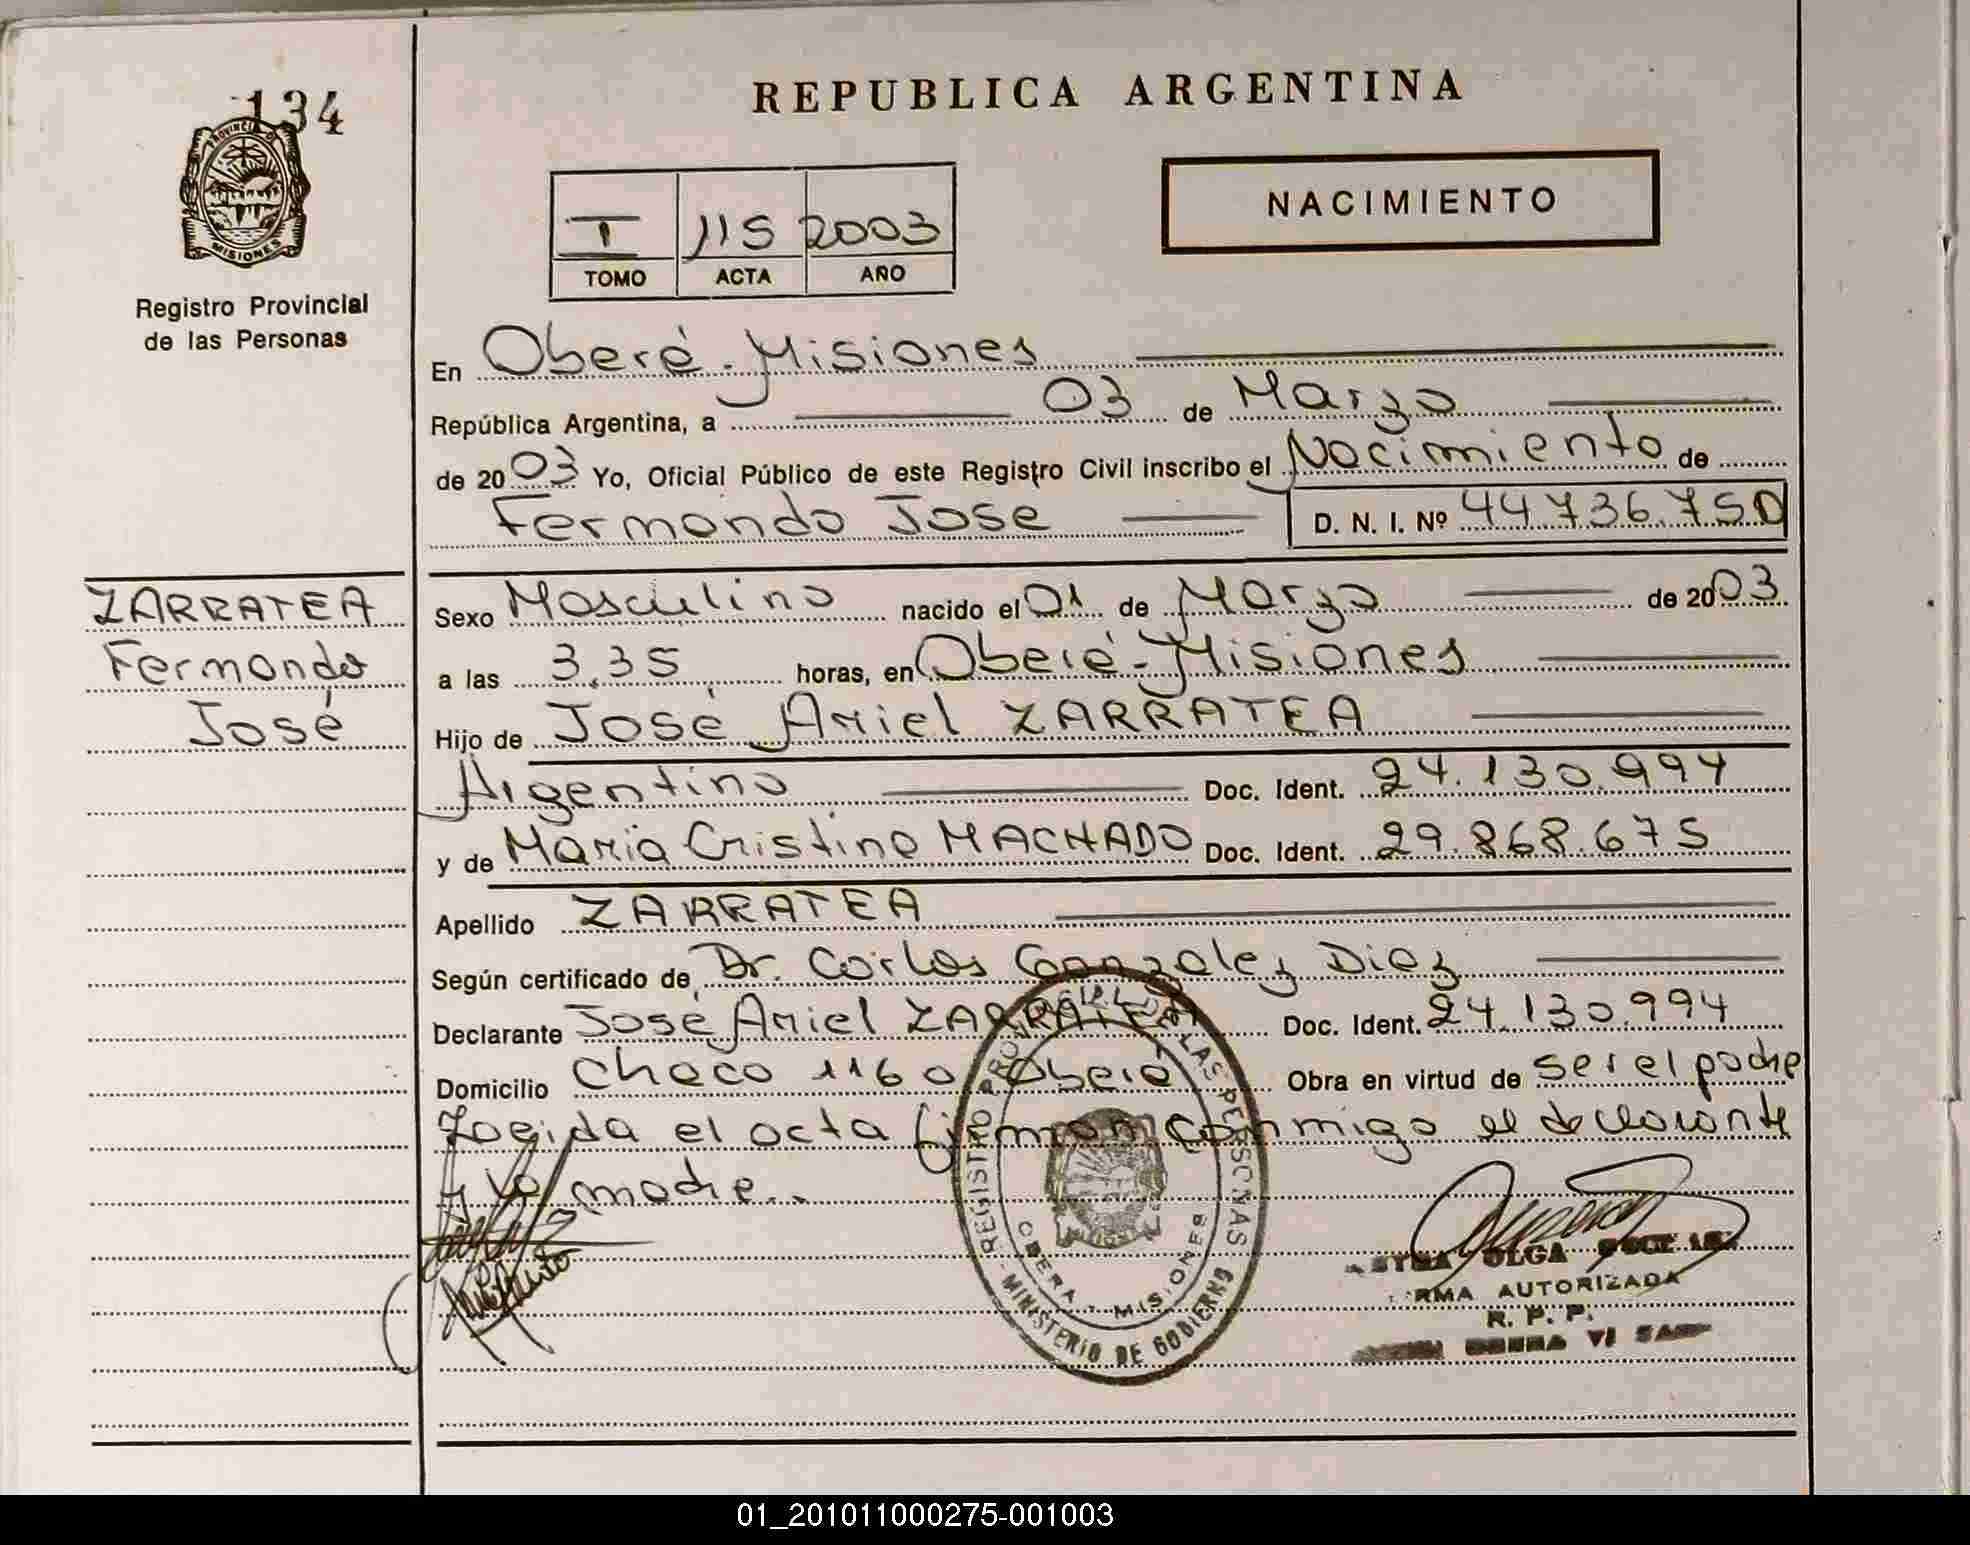 134
PROVINCIA DE
MISIONES
Registro Provincial
de las Personas
REPUBLICA ARGENTINA
I 115 2003
TOMO ACTA AÑO
NACIMIENTO
En Oberá - Misiones
República Argentina, a 03 de Marzo
de 2003 Yo, Oficial Público de este Registro Civil inscribo el Nacimiento de
Fernando Jose D. N. I. Nº 44.736.750
ZARRATEA
Fernando
José
Sexo Masculino nacido el 01 de Marzo de 2003
a las 3,35 horas, en Oberá - Misiones
Hijo de José Ariel ZARRATEA
Argentino Doc. Ident. 24.130.994
y de Maria Cristina MACHADO Doc. Ident. 29.868.675
Apellido ZARRATEA
Según certificado de Dr. Carlos Gonzalez Diaz
Declarante José Ariel ZARRATEA Doc. Ident. 24.130.994
Domicilio Chaco 1160 Oberá Obra en virtud de ser el padre
Leida el acta firman conmigo el declarante
y la madre..
REGISTRO PROVINCIAL DE LAS PERSONAS
OBERA - MISIONES
MINISTERIO DE GOBIERNO
OLGA
AUTORIZADA
R. P. P.
01_201011000275-001003